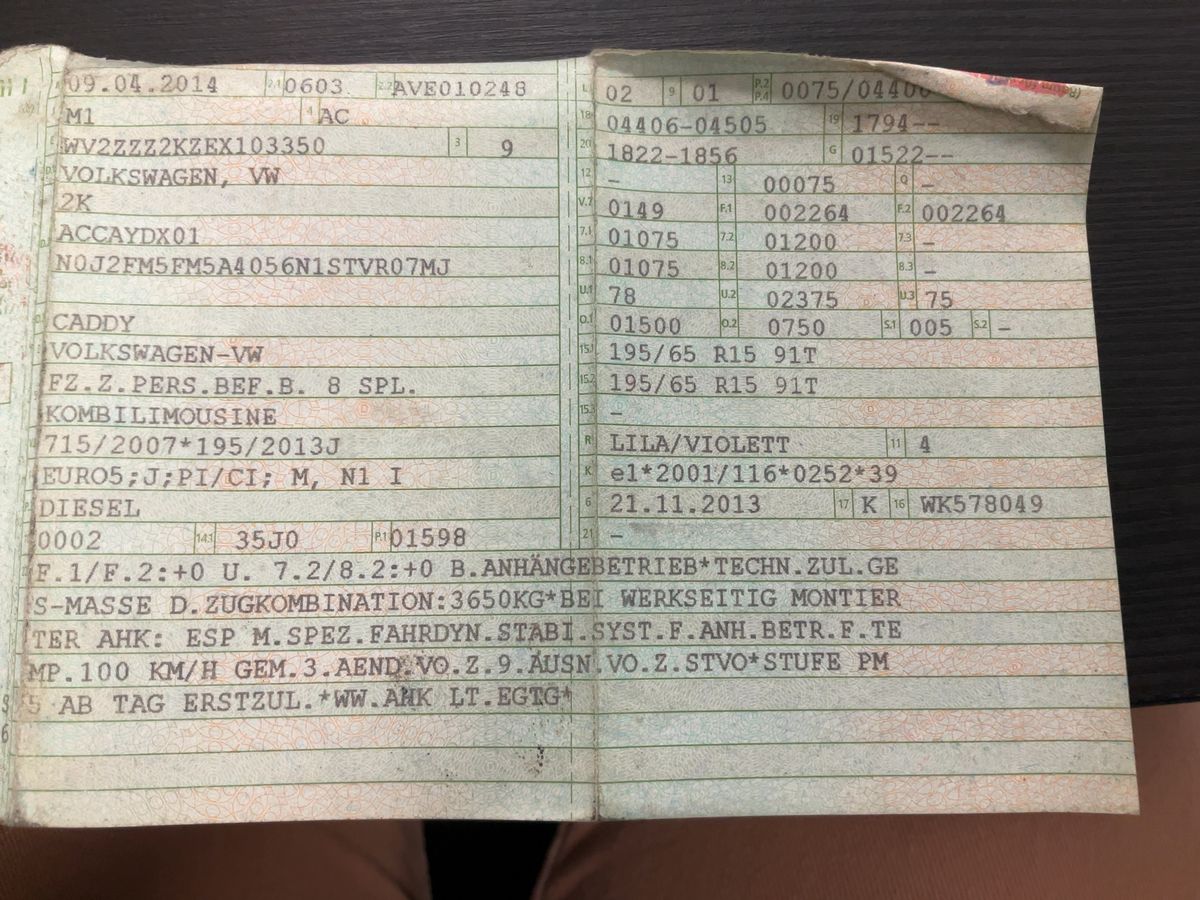 09.04.2014 2.1 0603 2.2 AVE010248
M1 4 AC
WV2ZZZ2KZEX103350 3 9
VOLKSWAGEN, VW
2K
ACCAYDX01
N0J2FM5FM5A4056N1STVR07MJ
CADDY
VOLKSWAGEN-VW
FZ.Z.PERS.BEF.B. 8 SPL.
KOMBILIMOUSINE
715/2007*195/2013J
EURO5;J;PI/CI; M, N1 I
DIESEL
0002 14.1 35J0 P.1 01598
L 02 9 01 P.2 P.4 0075/04400
18 04406-04505 19 1794--
20 1822-1856 G 01522--
12 - 13 00075 Q -
V.7 0149 F.1 002264 F.2 002264
7.1 01075 7.2 01200 7.3 -
8.1 01075 8.2 01200 8.3 -
U.1 78 U.2 02375 U.3 75
O.1 01500 O.2 0750 S.1 005 S.2 -
15.1 195/65 R15 91T
15.2 195/65 R15 91T
15.3 -
R LILA/VIOLETT 11 4
K e1*2001/116*0252*39
6 21.11.2013 17 K 16 WK578049
21 -
F.1/F.2:+0 U. 7.2/8.2:+0 B.ANHÄNGEBETRIEB*TECHN.ZUL.GE
S-MASSE D.ZUGKOMBINATION:3650KG*BEI WERKSEITIG MONTIER
TER AHK: ESP M.SPEZ.FAHRDYN.STABI.SYST.F.ANH.BETR.F.TE
MP.100 KM/H GEM.3.AEND.VO.Z.9.AUSN.VO.Z.STVO*STUFE PM
5 AB TAG ERSTZUL.*WW.AHK LT.EGTG*